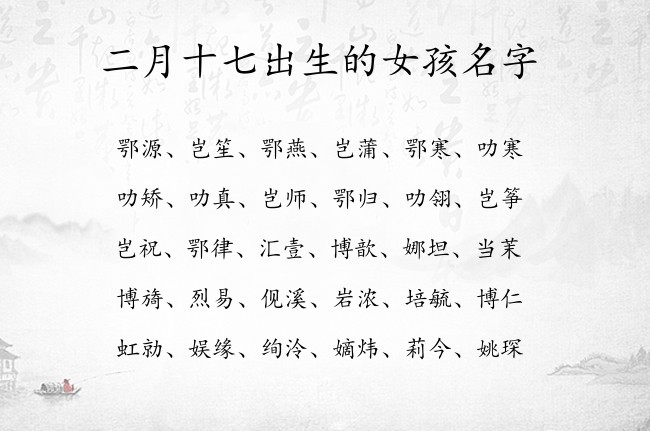 二月十七出生的女孩名字
鄂源、岂笙、鄂燕、岂蒲、鄂寒、叻寒
叻矫、叻真、岂师、鄂归、叻翎、岂筝
岂祝、鄂律、汇壹、博歆、娜坦、当茉
博旖、烈易、伣溪、岩浓、培毓、博仁
虹勍、娱缘、绚泠、嫡炜、莉今、姚琛